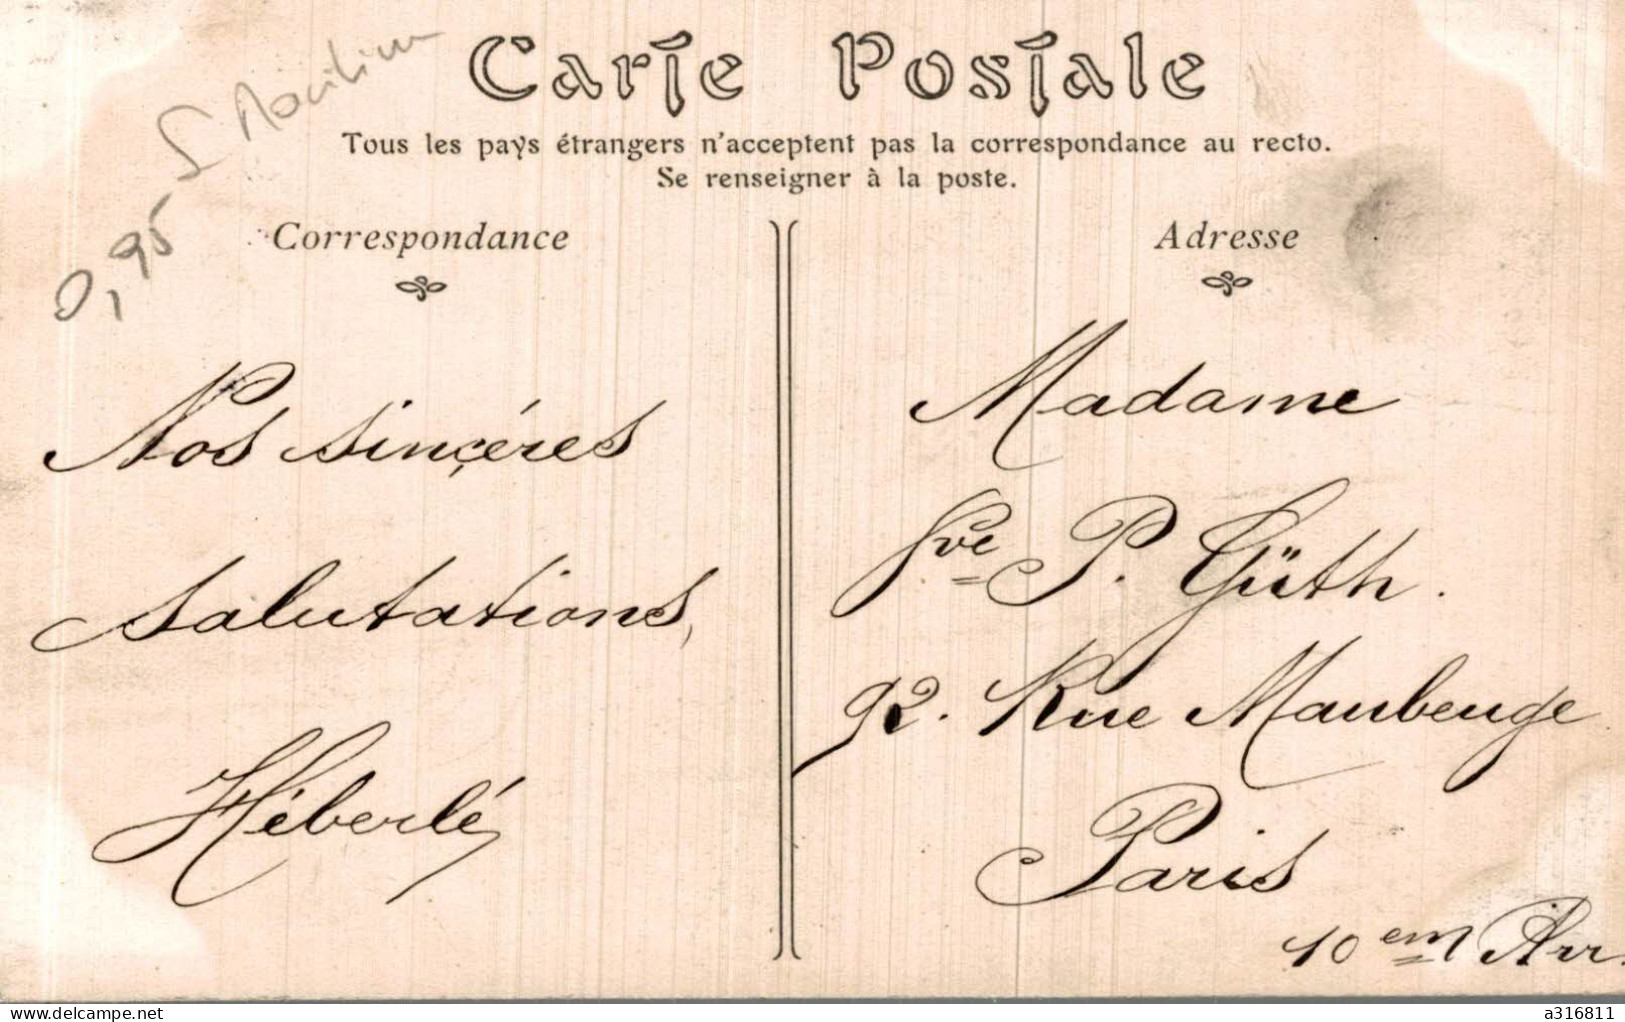 Carte Postale
Tous les pays étrangers n'acceptent pas la correspondance au recto.
Se renseigner à la poste.
0,95
Correspondance
Nos sinçéres
salutations,
Héberlé
Adresse
Madame
Vve P. Güth.
92. Rue Maubeuge
Paris
10em Arr.
delcampe.net
a316811